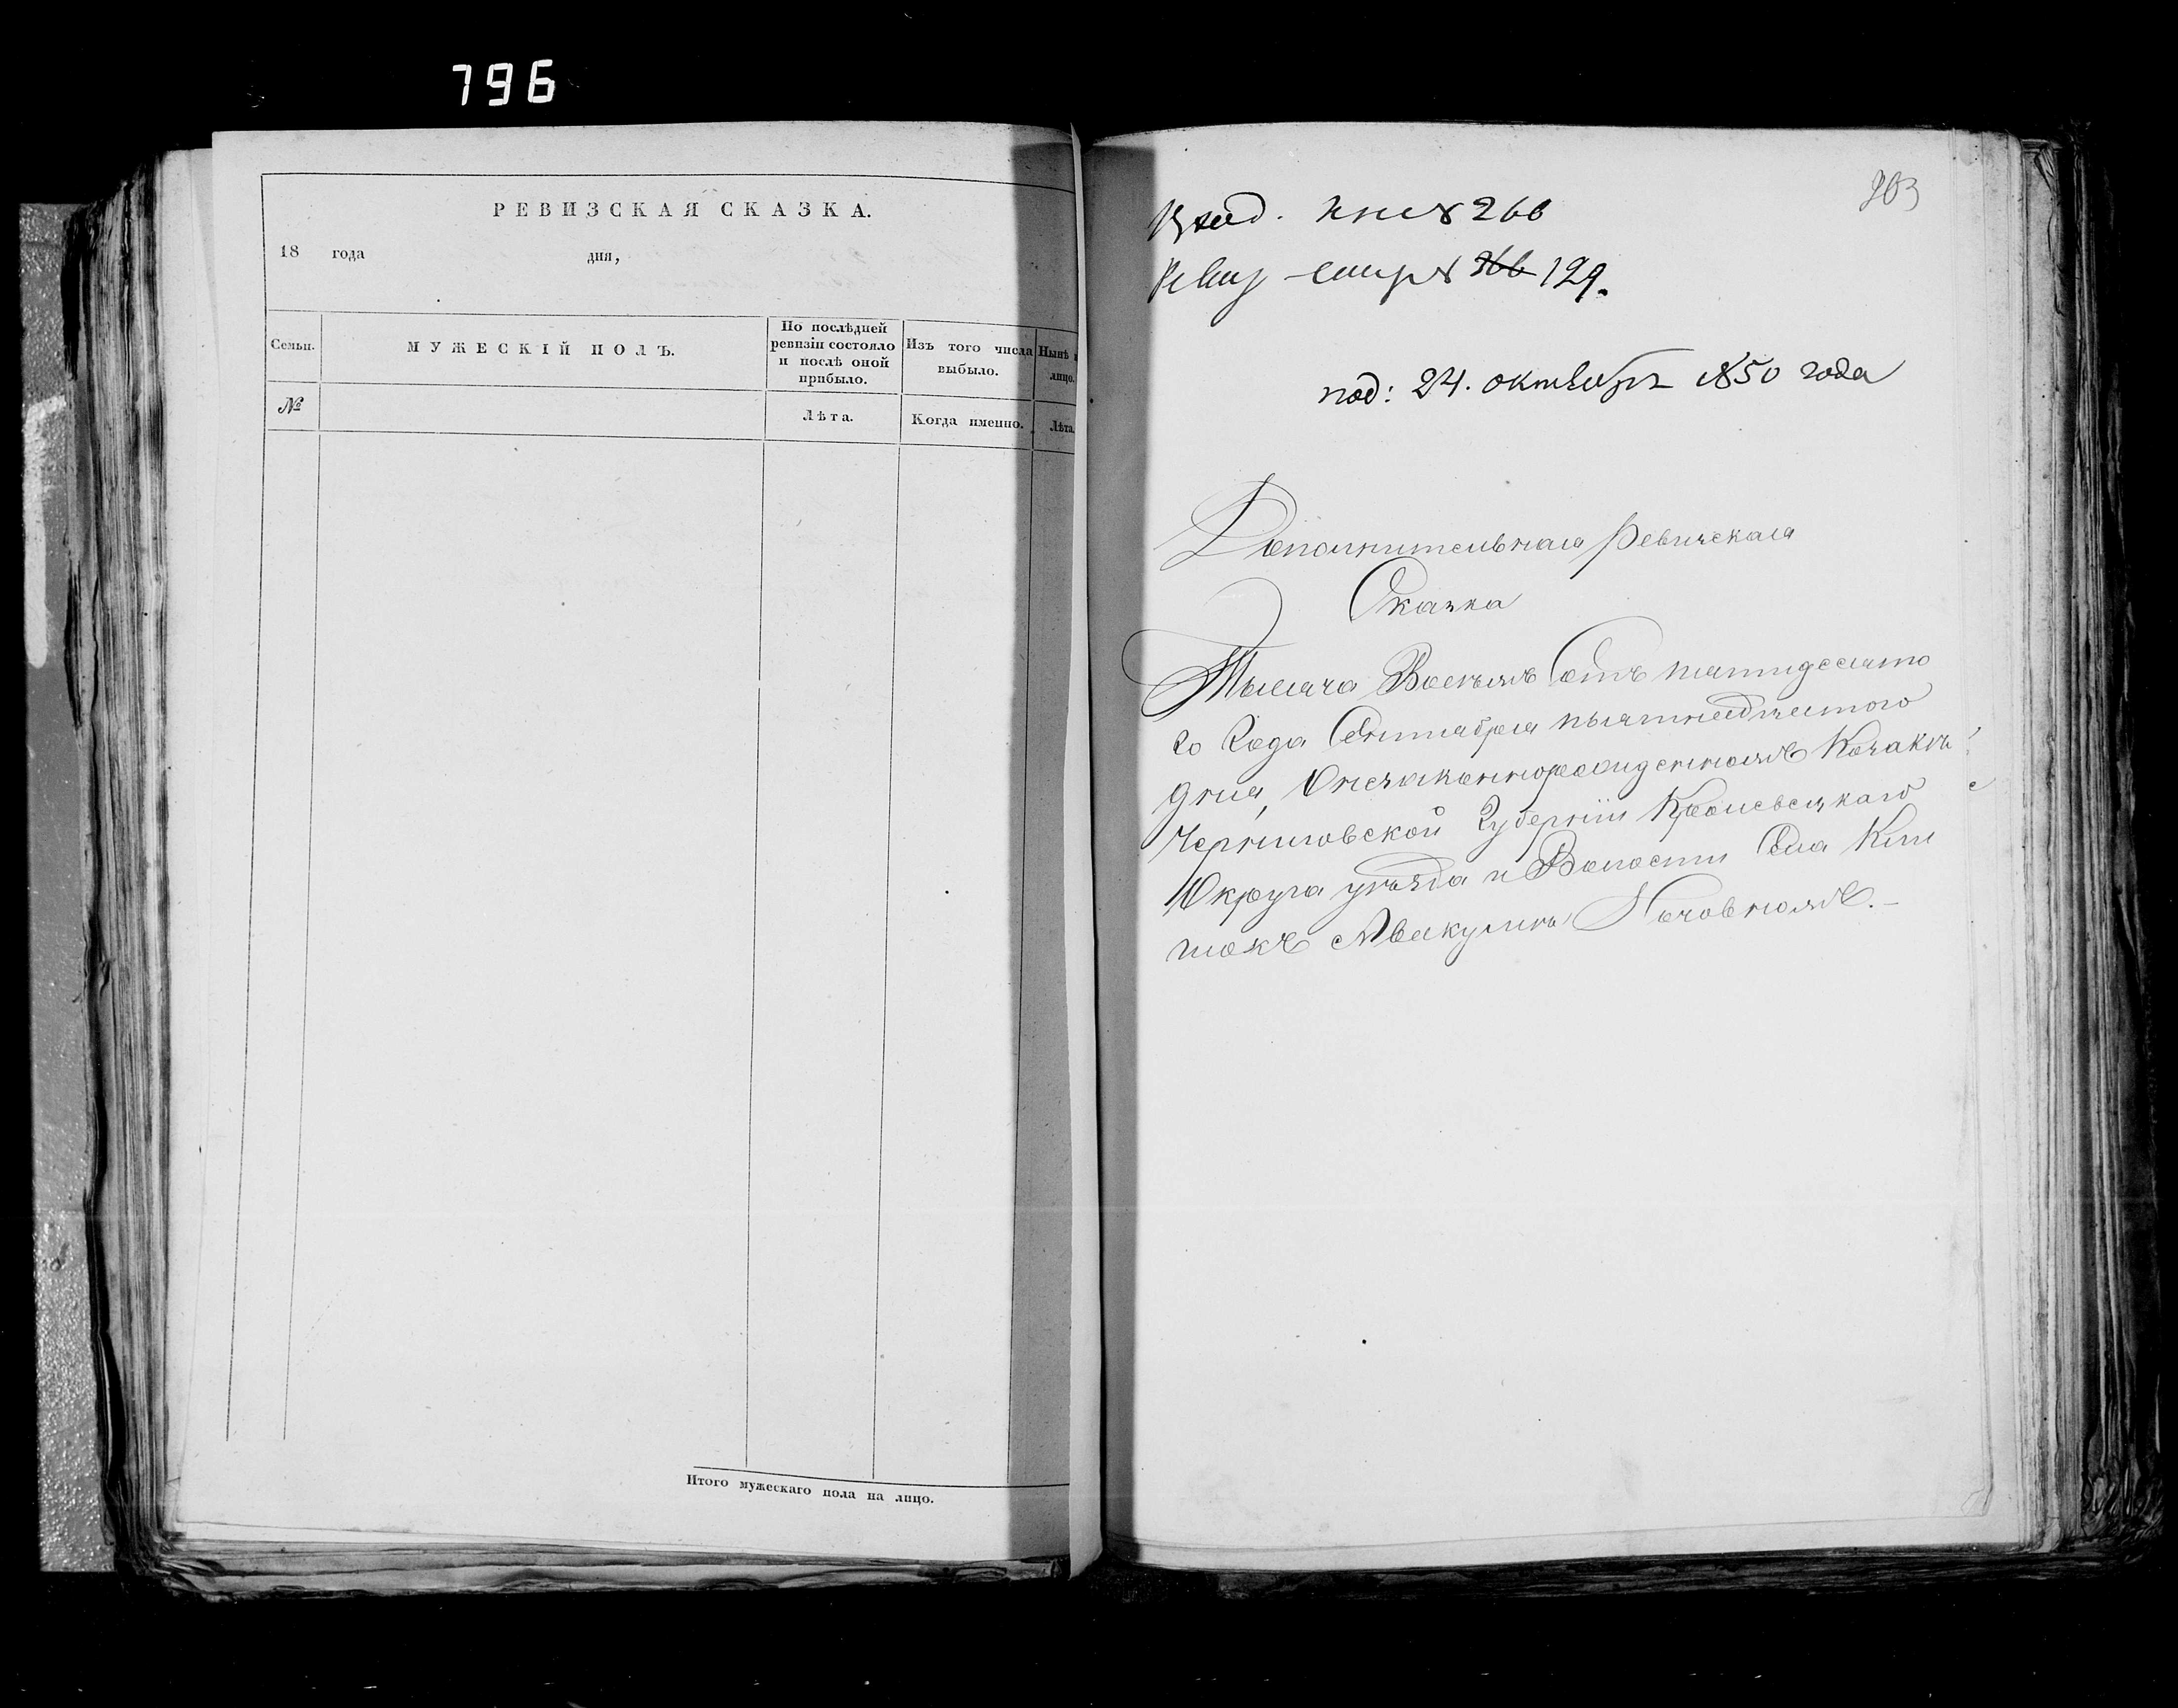 796
РЕВИЗСКАЯ СКАЗКА.
18 года дня,
Семьи.
МУЖЕСКІЙ ПОЛЪ.
По послѣдней
ревизіи состояло
и послѣ оной
прибыло.
Изъ того числа
выбыло.
Нынѣ
лицо.
№
Лѣта.
Когда именно.
Лѣта.
Итого мужескаго пола на лицо.
903
Вход. кн № 266
Ревиз № 366 129.
под: 24. октября 1850 года
Дополнительная Ревизская
Сказка
Тысяча Восемъ Сотъ пятидесято
го Года Сентября пятнадцатого
дня, Онезаконнорожденномъ Козакѣ
Черниговской Губерніи Кролевецкаго
Округа уѣзда и Волости Села